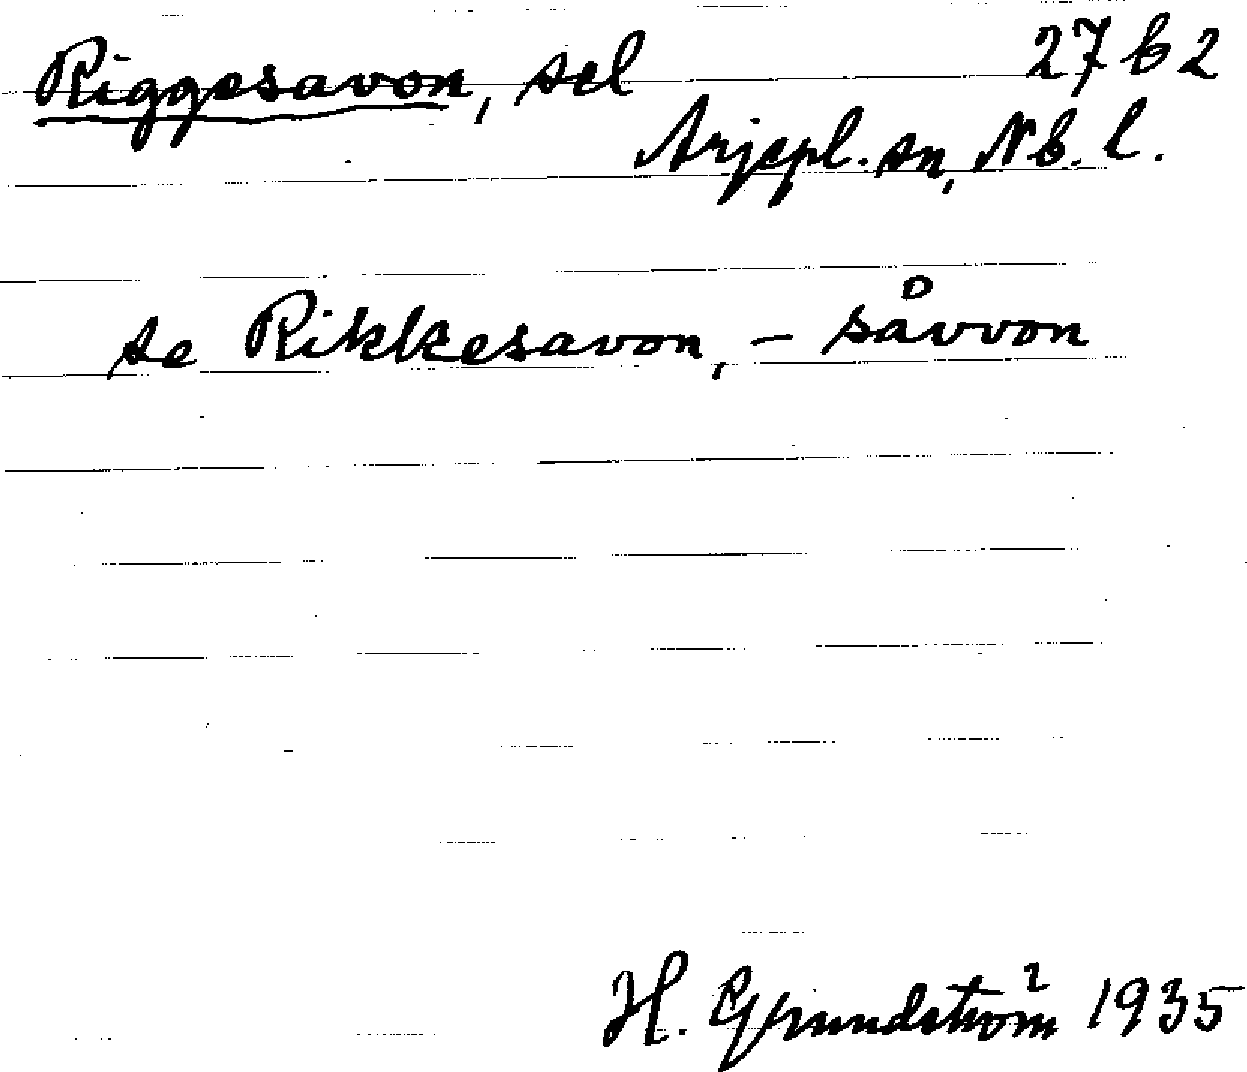 Riggesavon, sel 27 b 2
Arjepl. sn, Nb. l.
se Rikkesavon, - såvvon
H. Grundström 1935